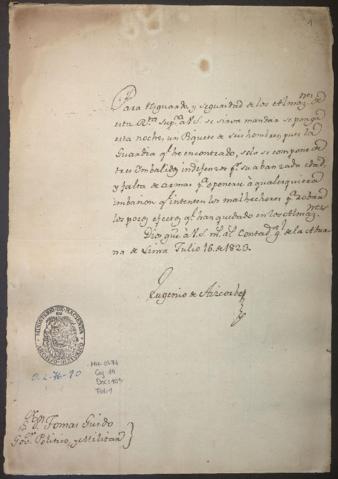 1
Para resguardo, y seguridad de los Almaz.nes de
esta Rta Sup.ca a V.S. se sirva mandar se ponga
esta noche, un Piquete de seis hombres, pues la
Guardia q.e he encontrado, solo se compone de
tres Imbalidos indefensos p.r su abanzada edad,
y falta de armas p.a oponerse a qualesquiera
imbacion q.e intenten los malhechores p.a robar
los pocos efectos q.e han quedado en los Almaz.nes
Dios gue. a V.S. m.s a.s Contad.a gl de la Adua
na de Lima Julio 16. de 1823.
Eugenio de Aizcorbe
MINISTERIO DE HACIENDA
O.L. 76-90
Tomas Guido
Gov.r Politico, y Militar